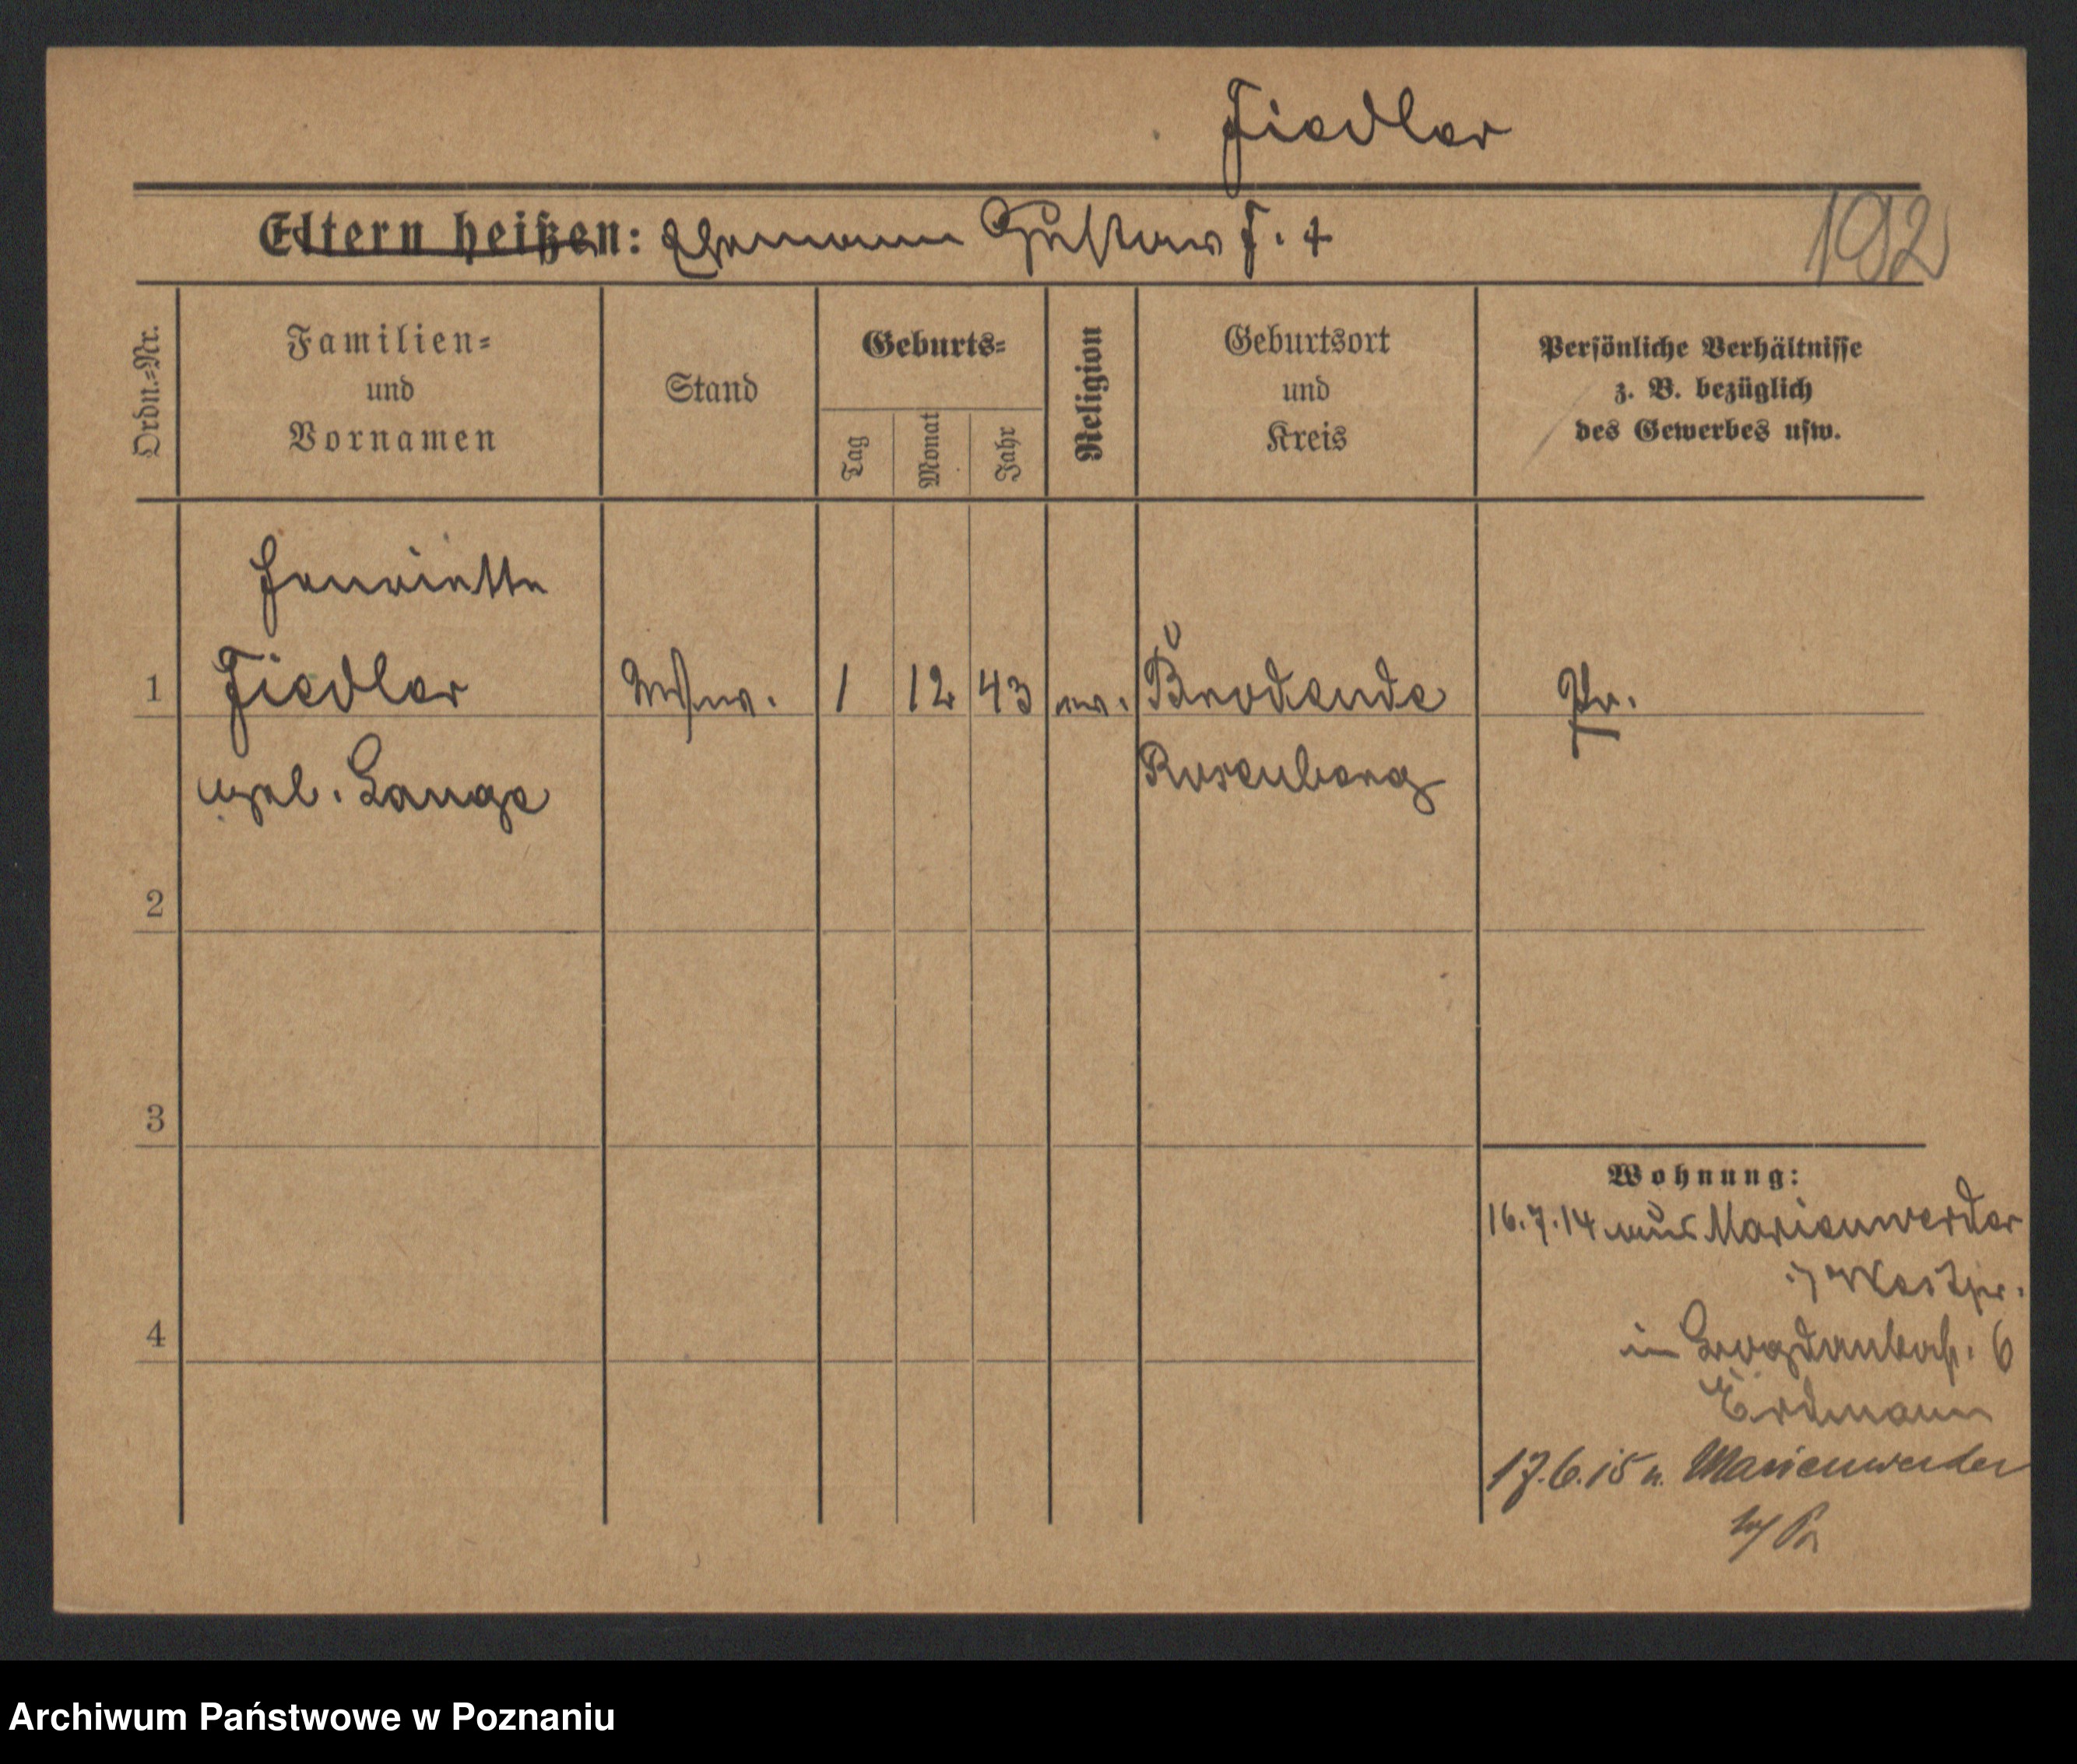 Fiedler
Eltern heißen: Ehemann Gustav F. +
192
Ordn.=Nr.
Familien=
und
Vornamen
Stand
Geburts=
Tag
Monat
Jahr
Religion
Geburtsort
und
Kreis
Persönliche Verhältnisse
z. B. bezüglich
des Gewerbes usw.
Henriette
1 Fiedler Wwe. 1 12 43 ev. Brodende Pr.
geb. Lange Rosenberg
2
3
4
Wohnung:
16.7.14 aus Marienwerder
Westpr.
in Bogdankastr. 6
Erdmann
17.6.15 n. Marienwerder
W/Pr
Archiwum Państwowe w Poznaniu